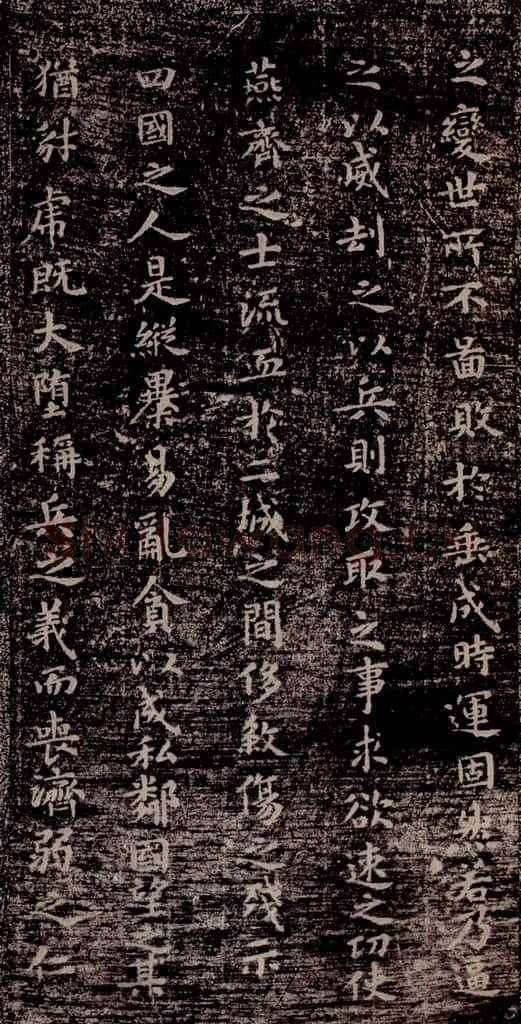 之變世所不啚敗於垂成時運固然若乃逼
之以威劫之以兵則攻取之事求欲速之功使
燕齊之士流血於二城之間侈煞傷之殘示
四國之人是縱暴易亂貪以成私鄰國望之其
猶豺虎既大墮稱兵之義而喪濟弱之仁